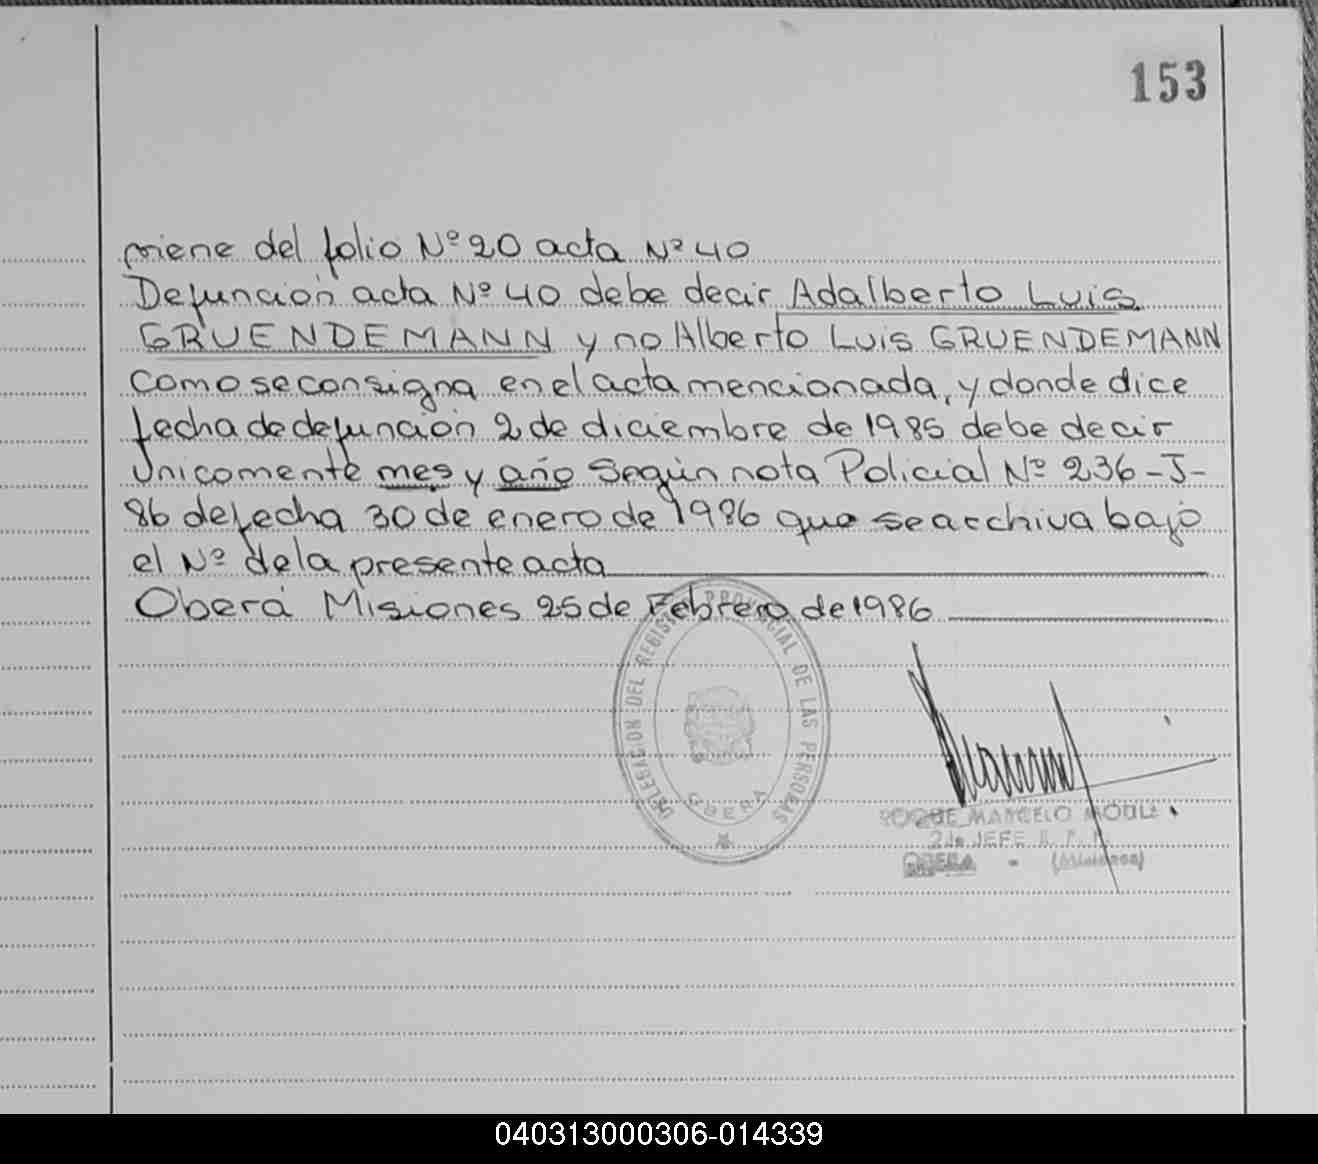 153
viene del folio Nº 20 acta Nº 40
Defunción acta Nº 40 debe decir Adalberto Luis
GRUENDEMANN y no Alberto Luis GRUENDEMANN
como se consigna en el acta mencionada, y donde dice
fecha de defunción 2 de diciembre de 1985 debe decir
unicamente mes y año según nota Policial Nº 236-J-
86 de fecha 30 de enero de 1986 que se archiva bajo
el Nº de la presente acta
Oberá Misiones 25 de Febrero de 1986
DELEGACION DEL REGISTRO PROVINCIAL DE LAS PERSONAS
OBERA
ROQUE MARCELO
2do JEFE R. P. P.
OBERA - (Misiones)
040313000306-014339